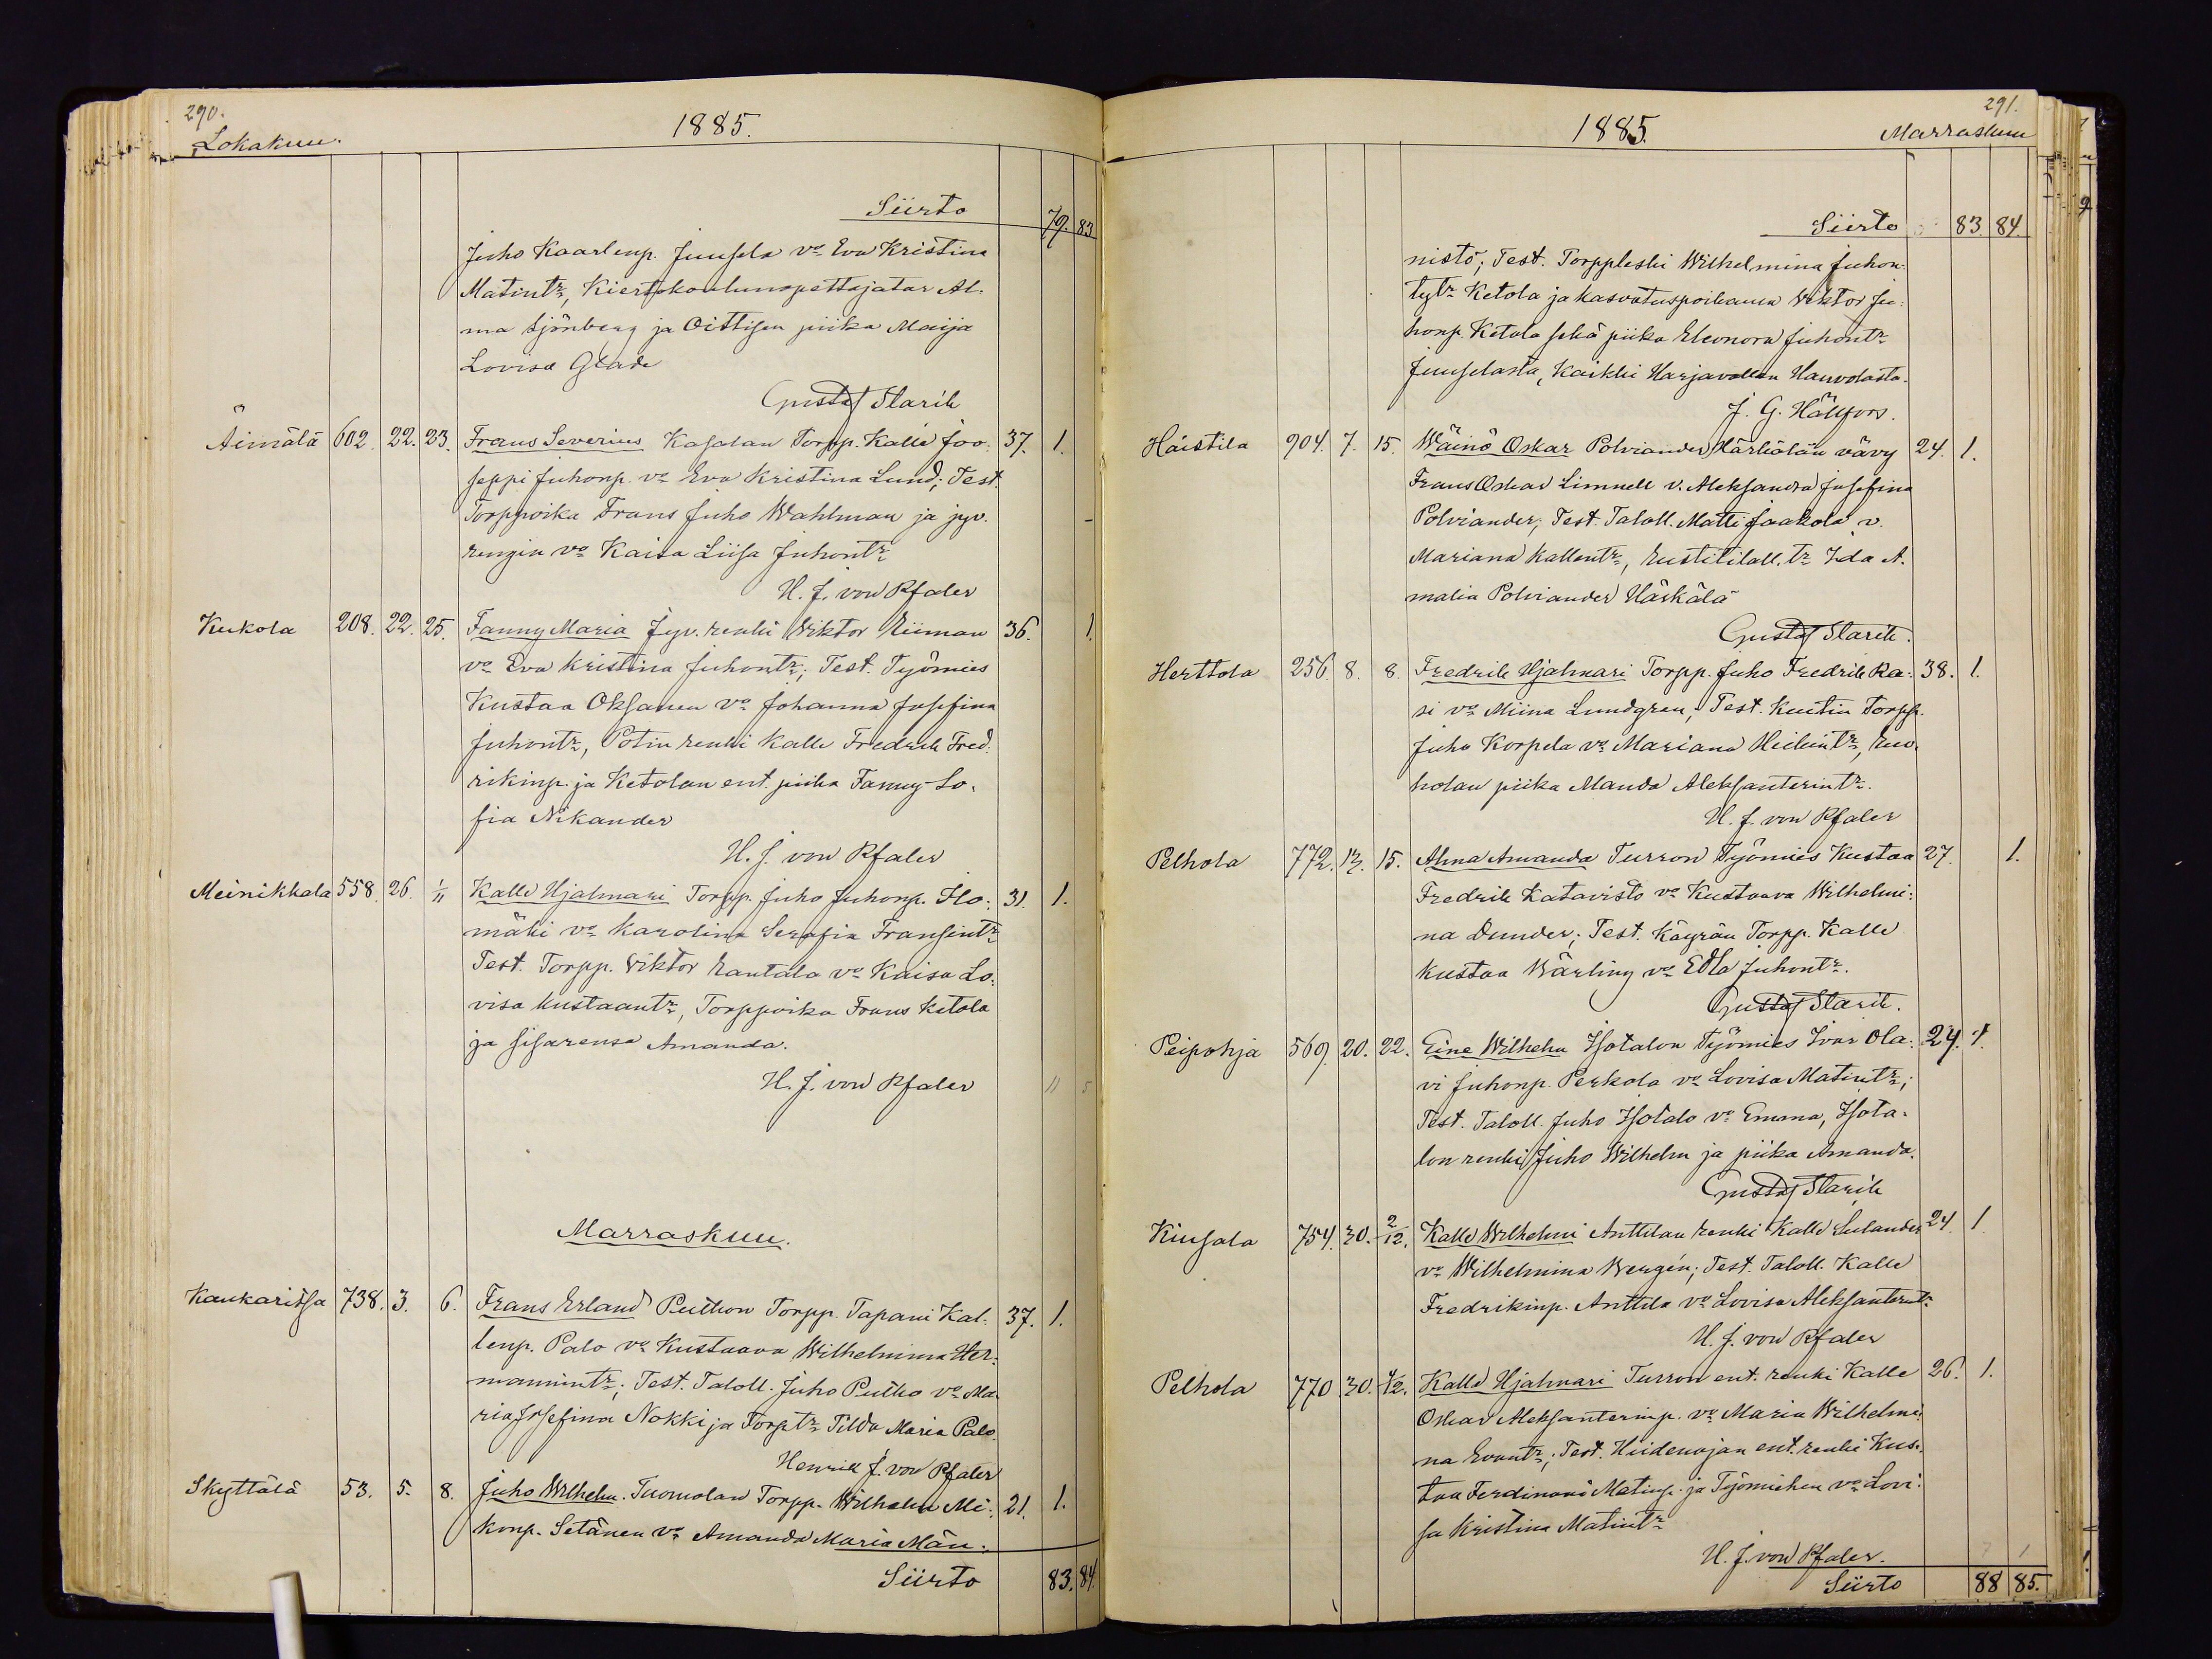 290.
Lokakuu.
1885.
Siirto 79. 83
Juho Kaarlenp. Juusela vo Eva Kristina
Matintr, Kiertokoulunopettajatar Al-
ma Sjönberg ja Oittisen piika Maija
Lovisa Glade
Gustaf Starck
Äimälä 602. 22. 23. Frans Severius Kasalan Torpp. Kalle Joo- 37. 1.
seppi Juhonp. vo Eva Kristina Lund; Test.
Torppoika Frans Juho Wahlman ja jyv.
rengin vo Kaisa Liisa Juhontr
H. J. von Pfaler
Kukola 208. 22. 25. Fanny Maria Jyv. renki Wiktor Niiman 36. 1.
vo Eva Kristina Juhontr; Test. Työmies
Kustaa Oksanen vo Johanna Josefina
Juhontr, Potin renki Kalle Fredrik Fred-
rikinp. ja Ketolan ent. piika Fanny So-
fia Nikander
H. J. von Pfaler
Meinikkala 558. 26. 1/11 Kalle Hjalmari Torpp. Juho Juhonp. Ilo- 31. 1.
mäki vo Karolina Serafia Fransintr
Test. Torpp. Viktor Rantala vo Kaisa Lo-
visa Kustaantr, Torppoika Frans Ketola
ja sisarensa Amanda.
H. J. von Pfaler
Marraskuu.
Kaukaritsa 738. 3. 6. Frans Erland Puthon Torpp. Tapani Kal- 37. 1.
lenp. Palo vo Kustaava Wilhelmina Her-
mannintr; Test. Taloll. Juho Putho vo Ma-
ria Josefina Nokki ja Torptr Tilda Maria Palo.
Henrik J. von Pfaler
Skyttälä 53. 5. 8. Juho Wilhelm. Tuomolan Torpp. Wilhelm Mi- 21. 1.
konp. Setänen vo Amanda Maria Män-
Siirto 83. 84.
291.
1885.
Marraskuu
Siirto 83. 84.
nistö; Test. Torppleski Wilhelmina Juhon-
tytr Ketola ja kasvatuspoikansa Viktor Ju-
honp. Ketola sekä piika Eleonora Juhontr
Juuselasta, Kaikki Harjavallan Hauvolasta.
J. G. Hällfors.
Haistila 904. 7. 15. Wäinö Oskar Polviander Härkälän vävy 24. 1.
Frans Oskar Limnell v. Aleksandra Josefina
Polviander; Test. Taloll. Matti Jaakola v.
Mariana Kallentr, Rustitilall. tr Ida A-
malia Polviander Härkälä
Gustaf Starck.
Herttola 256. 8. 8. Fredrik Hjalmari Torpp. Juho Fredrik Ra- 38. 1.
si vo Miina Lundgren; Test. Kuutin Torpp.
Juho Korpela vo Mariana Heikintr, Ruo-
holan piika Manda Aleksanterintr.
H. J. von Pfaler
Pelhola 772. 12. 15. Alma Amanda Turron Työmies Kustaa 27. 1.
Fredrik Katavisto vo Kustaava Wilhelmi-
na Dunder; Test. Käyrän Torpp. Kalle
Kustaa Wärling vo Edla Juhontr.
Gustaf Starck.
Peipohja 569. 20. 22. Eine Wilhelm Isotalon Työmies Ivar Ola- 24. 1.
vi Juhonp. Perkola vo Lovisa Matintr;
Test. Taloll. Juho Isotalo vo Emma, Isota-
lon renki Juho Wilhelm ja piika Amanda.
Gustaf Starck
Kiusala 754. 30. 2/12. Kalle Wilhelmi Anttilan renki Kalle Sulander 24 1
vo Wilhelmina Wengén; Test. Taloll. Kalle
Fredrikinp. Anttila vo Lovisa Aleksanterintr
H. J. von Pfaler
Pelhola 770 30. 4/12. Kalle Hjalmari Turron ent. renki Kalle 26. 1.
Oskar Aleksanterinp. vo Maria Wilhelmi-
na Evantr; Test. Hiidenojan ent. renki Kus-
taa Ferdinand Matinp. ja Työmiehen vo Lovi-
sa Kristina Matintr
H. J. von Pfaler.
Siirto 88 85.